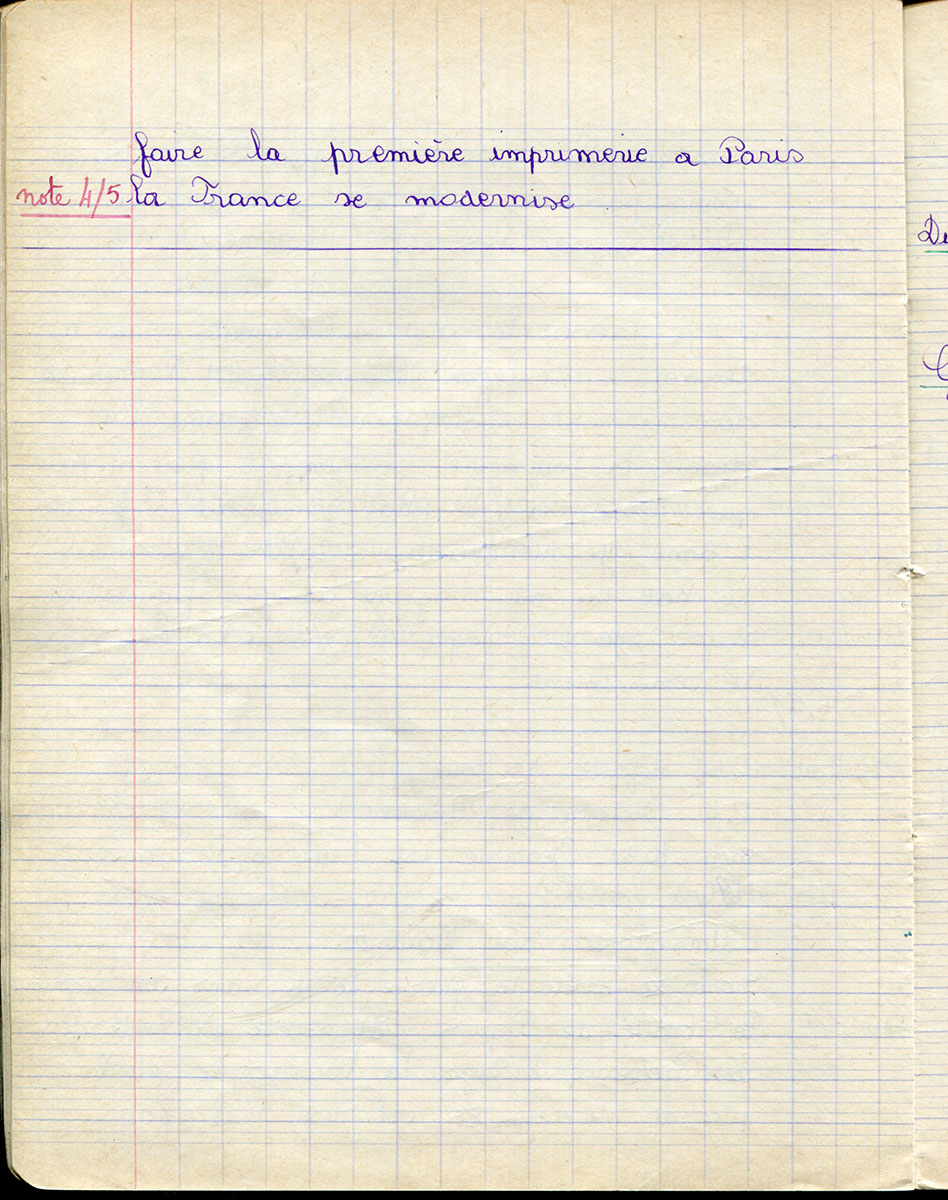 faire la première imprimerie a Paris
note 4/5 la France se modernise
De